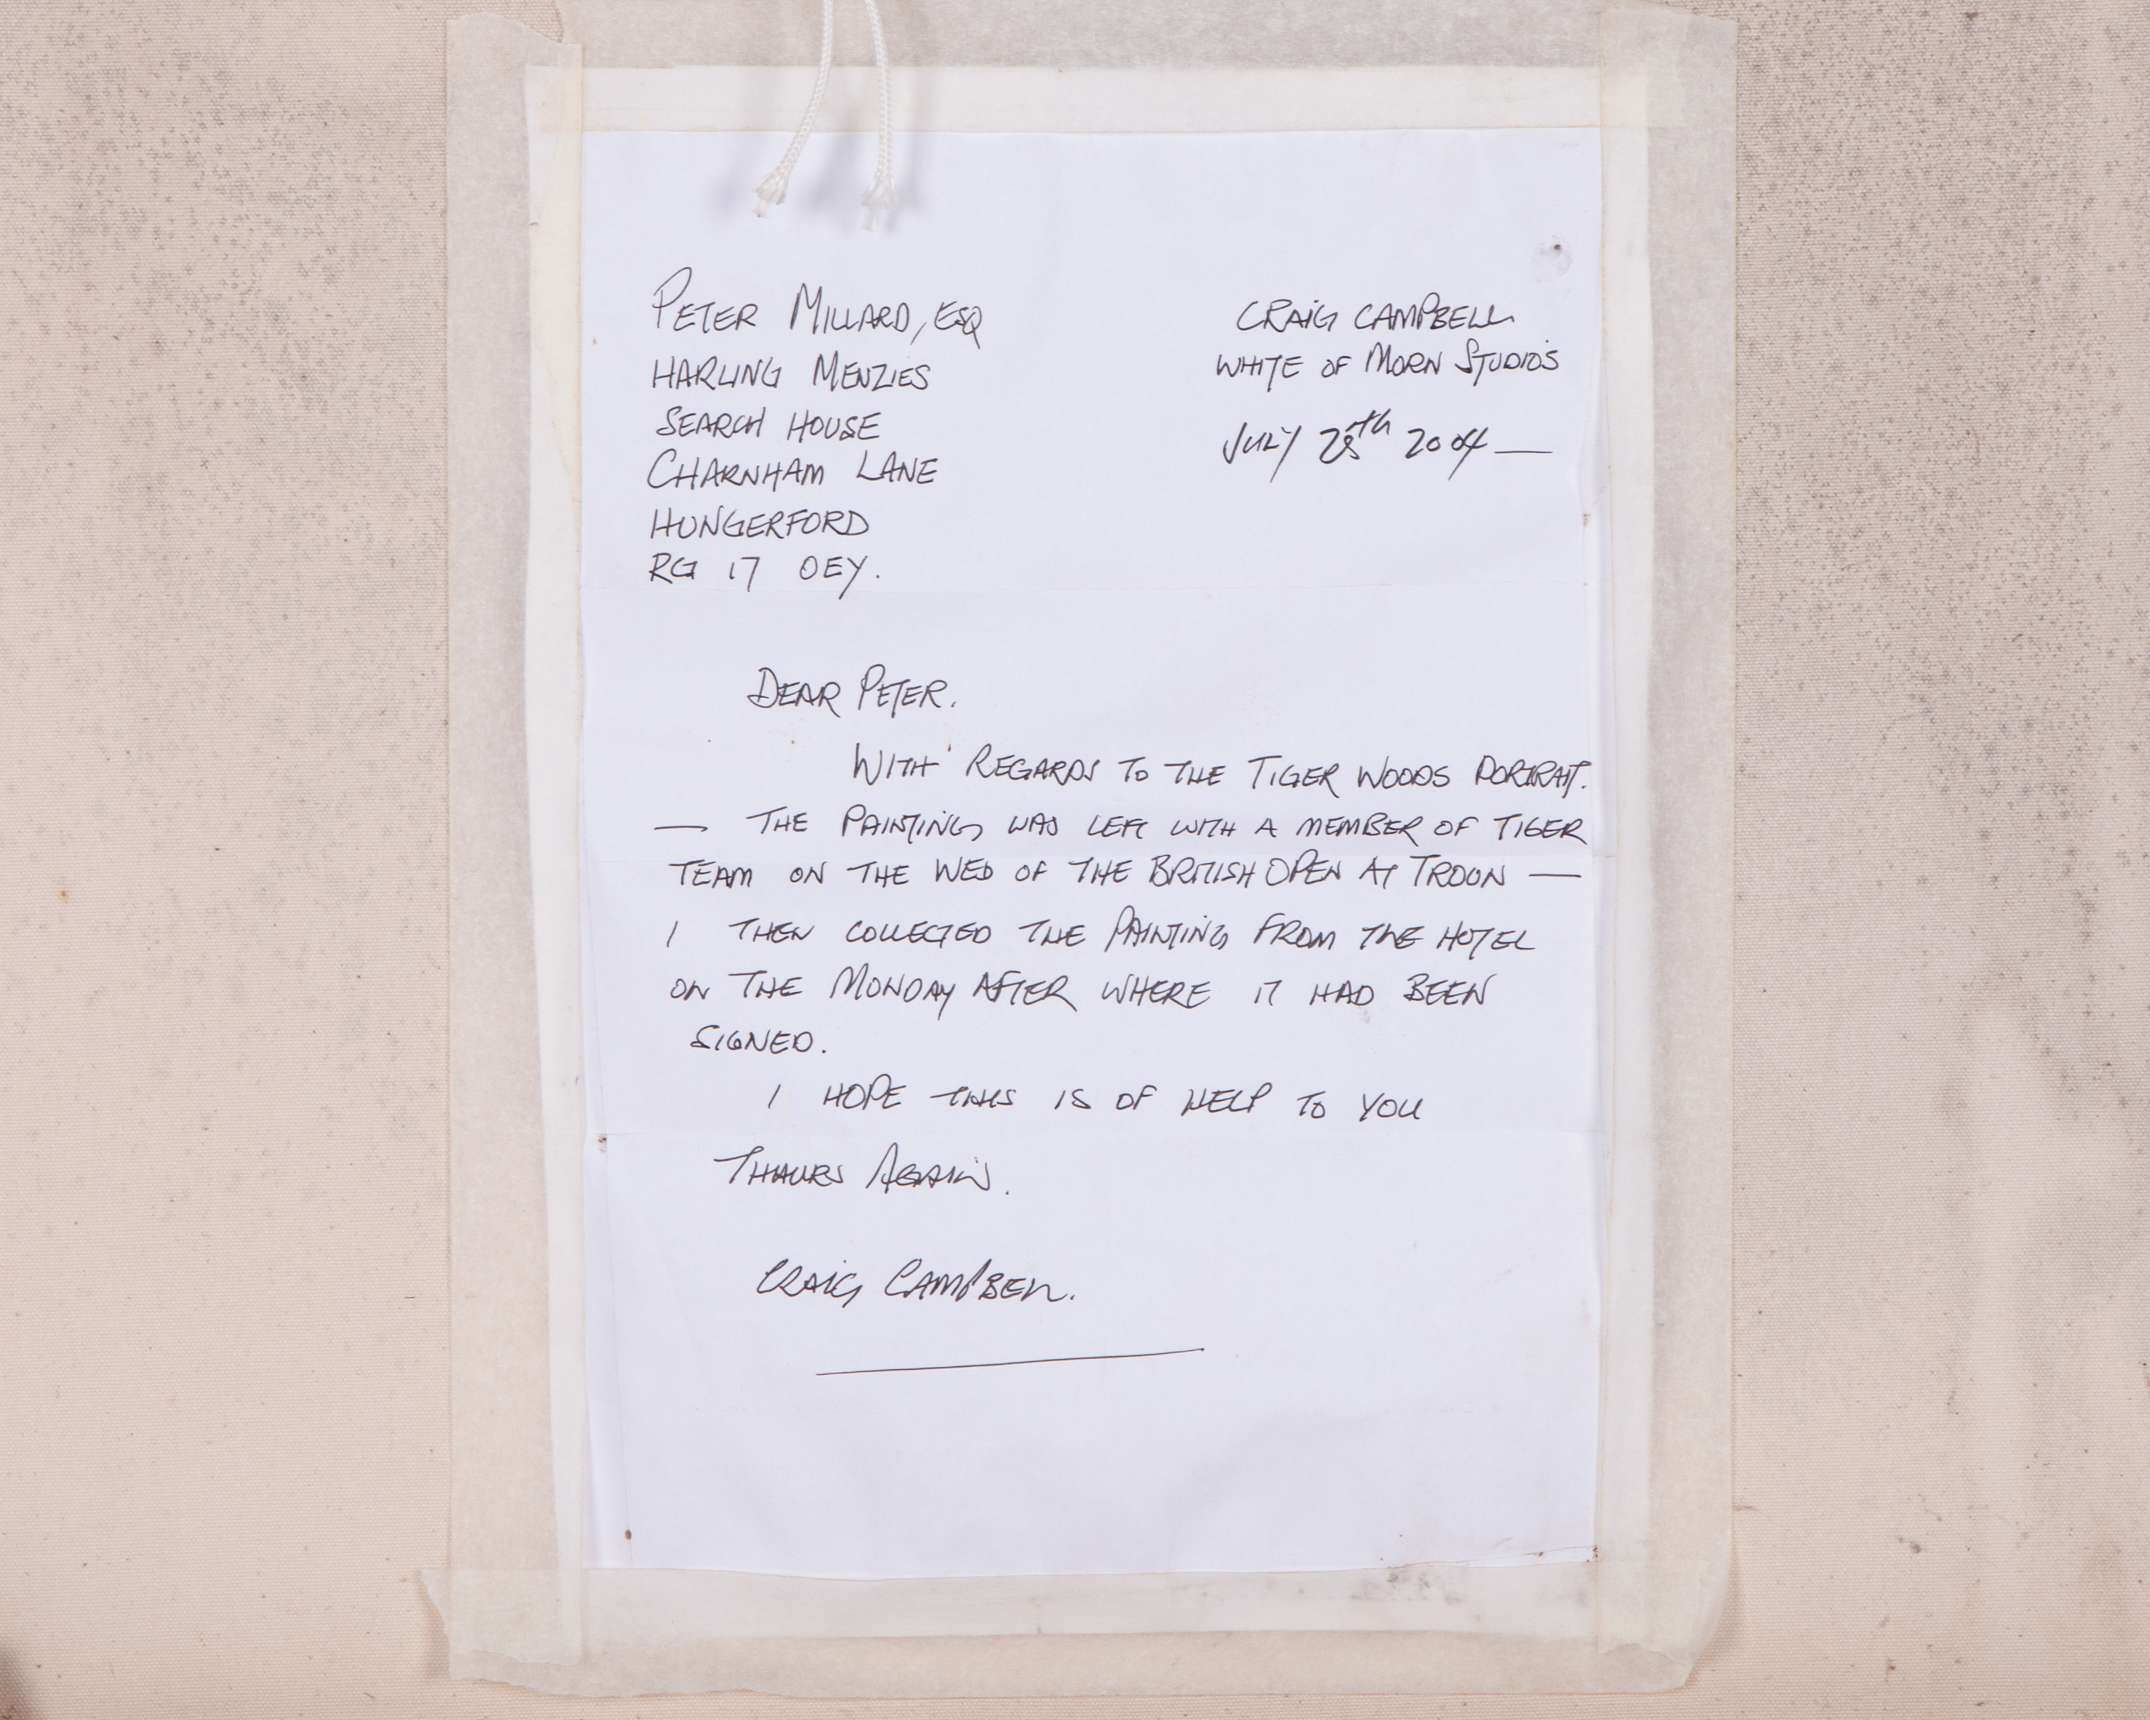 PETER MILLARD, ESQ
HARLING MENZIES
SEARCH HOUSE
CHARNHAM LANE
HUNGERFORD
RG 17 0EY.
CRAIG CAMPBELL
WHITE OF MORN STUDIO'S
JULY 28th 2004 —
DEAR PETER.
WITH REGARDS TO THE TIGER WOODS PORTRAIT.
— THE PAINTING WAS LEFT WITH A MEMBER OF TIGER
TEAM ON THE WED OF THE BRITISH OPEN AT TROON —
I THEN COLLECTED THE PAINTING FROM THE HOTEL
ON THE MONDAY AFTER WHERE IT HAD BEEN
SIGNED.
I HOPE THIS IS OF HELP TO YOU
THANKS AGAIN.
CRAIG CAMPBELL.